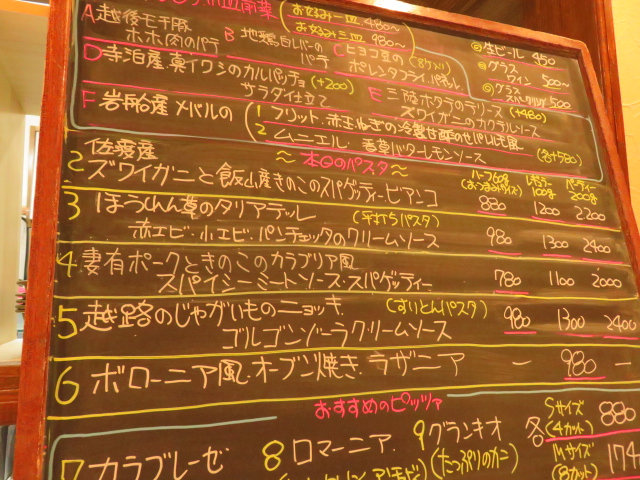 お好み一皿 480〜
お好み三皿 980〜
A 越後モチ豚
ホホ肉のパテ
B 地鶏白レバーの
パテ
C ヒヨコ豆の
ポレンタフライ
D 寺泊産 真イワシのカルパッチョ (+200)
サラダ仕立て
E 三陸ホタテのテリーヌ (+480)
ズワイガニのカクテルソース
F 岩船産 メバルの
1 フリット・赤玉ねぎの冷製甘酢のせ
2 ムニエル・香草バターレモンソース (各+580)
生ビール 450
グラス
ワイン 500〜
グラス
スパークリング 500
〜本日のパスタ〜
ハーフ60g レギュラー100g パーティー200g
(おつまみサイズ)
2 佐渡産
ズワイガニと飯山産きのこのスパゲッティービアンコ 880 1200 2200
3 ほうれん草のタリアテッレ (平打ちパスタ)
赤エビ・小エビ・パンチェッタのクリームソース 980 1300 2400
4 妻有ポークときのこのカラブリア風
スパイシーミートソース・スパゲッティー 780 1100 2000
5 越路のじゃがいものニョッキ (すいとんパスタ)
ゴルゴンゾーラクリームソース 980 1300 2400
6 ボローニア風・オーブン焼き・ラザニア — 980 —
おすすめのピッツァ
7 カラブレーゼ
8 ロマーニア
9 グランキオ
(たっぷりのカニ)
各 Sサイズ (4カット) 880
Mサイズ (8カット)